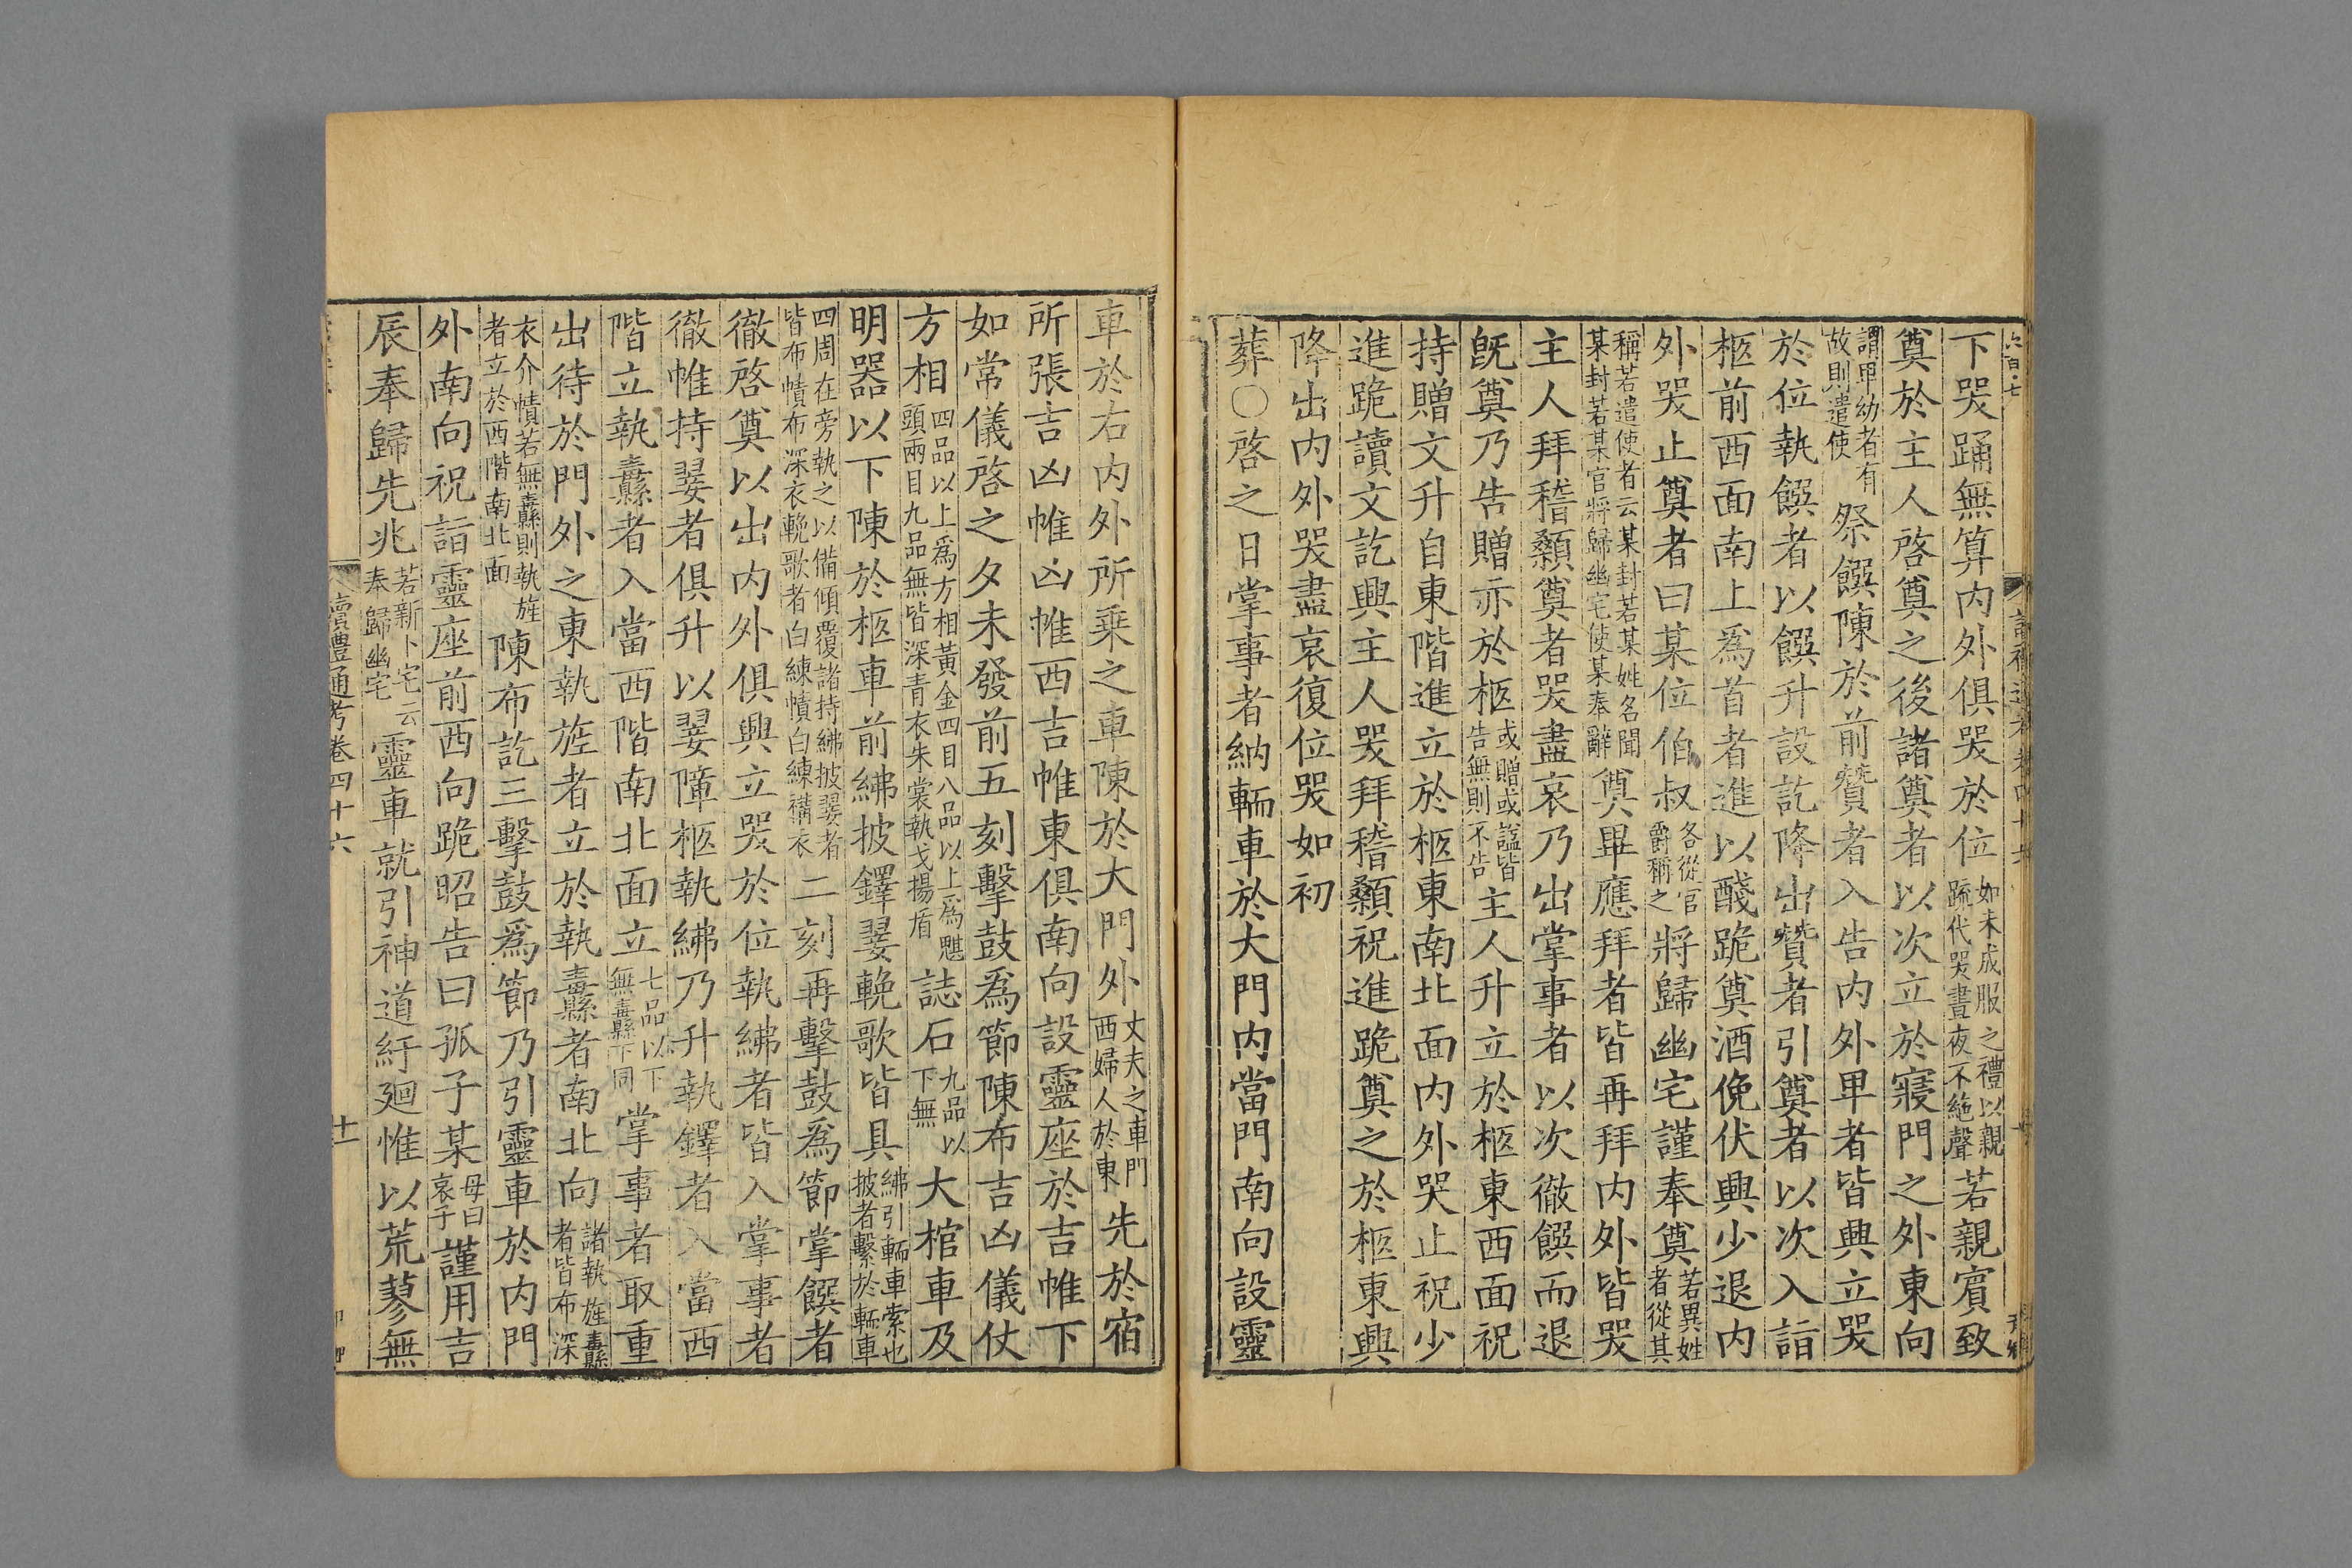 下哭踊無算内外俱哭於位如未成服之禮以親疏代哭晝夜不絶聲若親賓致
奠於主人啓奠之後諸奠者以次立於寢門之外東向
謂卑幼者有故則遣使祭饌陳於前贊者入告内外卑者皆興立哭
於位執饌者以饌升設訖降出贊者引奠者以次入詣
柩前西面南上爲首者進以醆跪奠酒俛伏興少退内
外哭止奠者曰某位伯叔各從官爵稱之將歸幽宅謹奉奠若異姓者從其
稱若遣使者云某封若某姓名聞某封若某官將歸幽宅使某奉辭奠畢應拜者皆再拜内外皆哭
主人拜稽顙奠者哭盡哀乃出掌事者以次徹饌而退
旣奠乃告贈亦於柩或贈或諡皆告無則不告主人升立於柩東西面祝
持贈文升自東階進立於柩東南北面内外哭止祝少
進跪讀文訖興主人哭拜稽顙祝進跪奠之於柩東興
降出内外哭盡哀復位哭如初
葬○啓之日掌事者納輀車於大門内當門南向設靈
車於右内外所乗之車陳於大門外丈夫之車門西婦人於東先於宿
所張吉凶帷凶帷西吉帷東俱南向設靈座於吉帷下
如常儀啓之夕未發前五刻擊鼓爲節陳布吉凶儀仗
方相四品以上爲方相黃金四目八品以上爲魌頭兩目九品無皆深青衣朱裳執戈揚盾誌石九品以下無大棺車及
明器以下陳於柩車前紼披鐸翣輓歌皆具紼引輀車索也披者繫於輀車
四周在旁執之以備傾覆諸持紼披翣者皆布幘布深衣輓歌者白練幘白練褠衣二刻再擊鼓爲節掌饌者
徹啓奠以出内外俱興立哭於位執紼者皆入掌事者
徹帷持翣者俱升以翣障柩執紼乃升執鐸者入當西
階立執纛者入當西階南北面立七品以下無纛下同掌事者取重
出待於門外之東執旌者立於執纛者南北向諸執旌纛者皆布深
衣介幘若無纛則執旌者立於西階南北面陳布訖三擊鼓爲節乃引靈車於内門
外南向祝詣靈座前西向跪昭告曰孤子某母曰哀子謹用吉
辰奉歸先兆若新卜宅云奉歸幽宅靈車就引神道紆廻惟以荒蓼無
讀禮通考卷四十六
十一